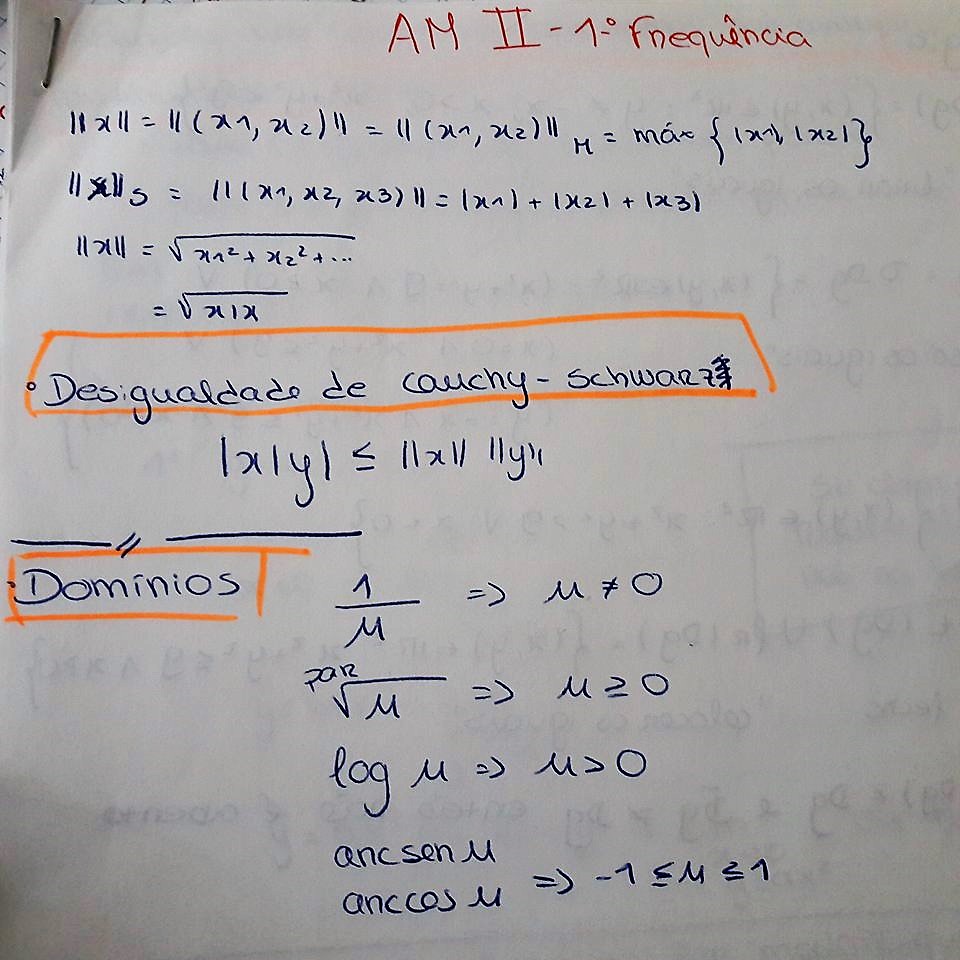 AM II - 1.º Frequência
||x|| = ||(x1, x2)|| = ||(x1, x2)||M = máx {|x1|, |x2|}
||x||S = ||(x1, x2, x3)|| = |x1| + |x2| + |x3|
||x|| = √x1² + x2² + ...
= √x|x
• Desigualdade de Cauchy-Schwarz
|x|y| ≤ ||x|| ||y||
• Domínios
1/μ => μ ≠ 0
par√μ => μ ≥ 0
log μ => μ > 0
arcsen μ
arccos μ => -1 ≤ μ ≤ 1